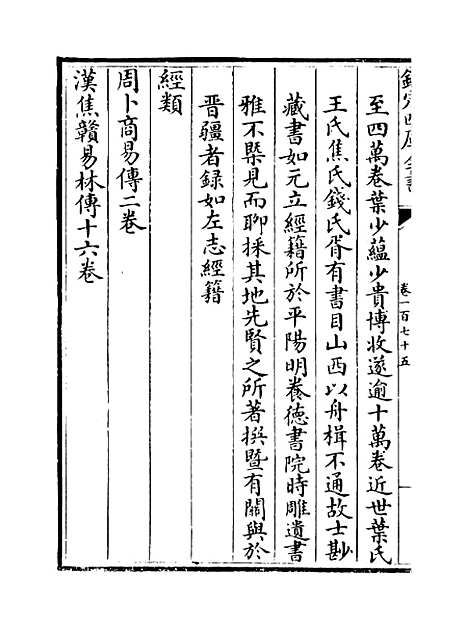 欽定四庫全書
卷一百七十五
至四萬卷葉少蘊少貴博收遂逾十萬卷近世葉氏
王氏焦氏錢氏胥有書目山西以舟楫不通故士尠
藏書如元立經籍所於平陽明養徳書院時雕遺書
雅不槩見而聊採其地先賢之所著撰暨有關與於
晉疆者録如左志經籍
經類
周卜商易傳二卷
漢焦贛易林傳十六卷